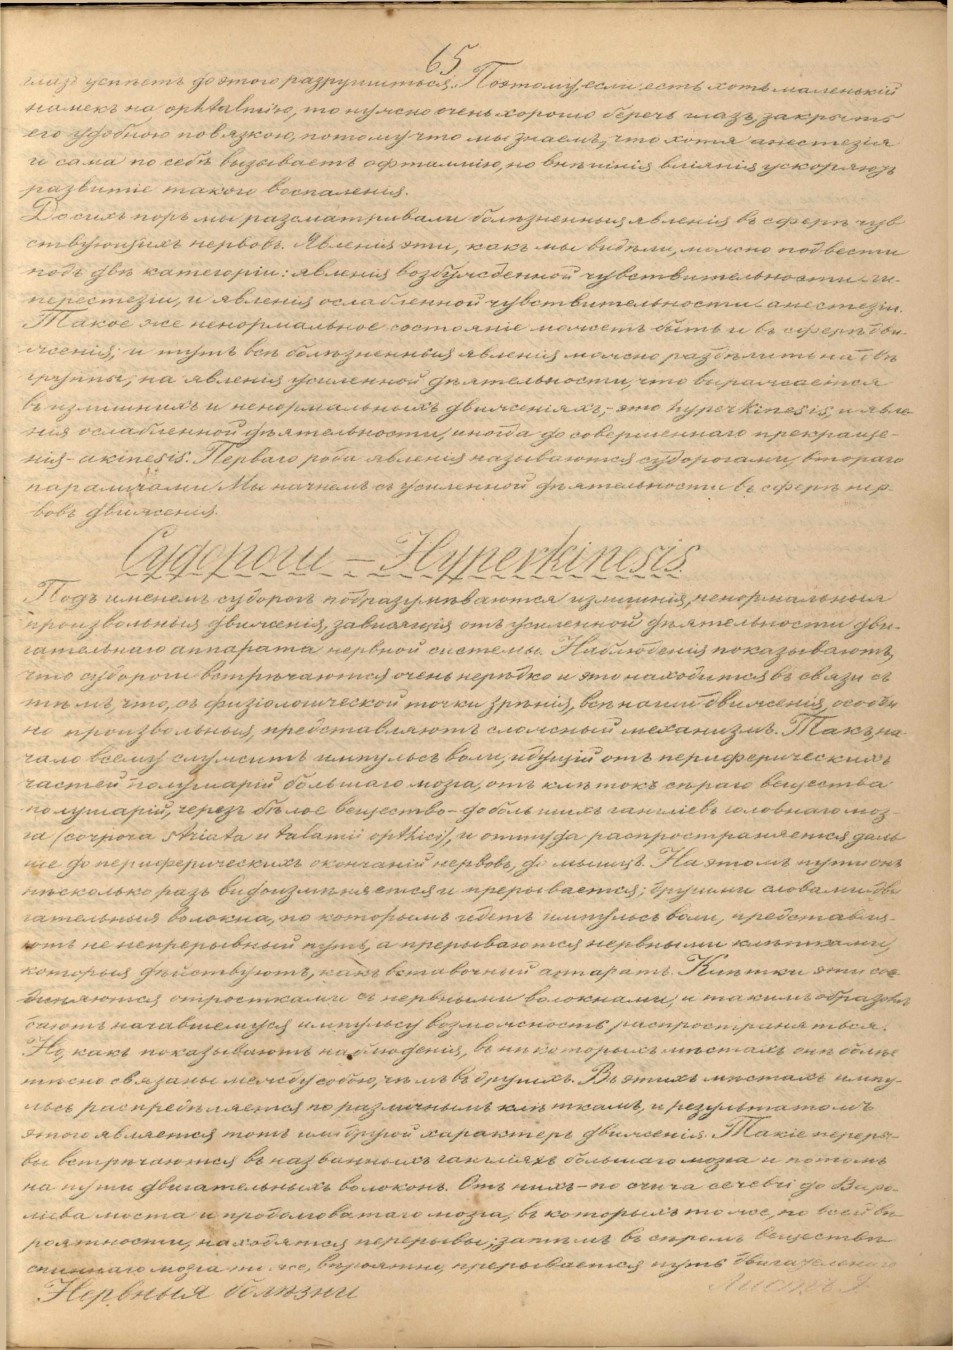 65
глазъ успѣетъ до этого разрушиться. Поэтому, если есть хоть маленькій
намекъ на ophtalmію, то нужно очень хорошо беречь глазъ, закрыть
его удобною повязкою, потому что мы знаемъ, что хотя анестезія
и сама по себѣ вызываетъ офталмію, но внѣшнія вліянія ускоряютъ
развитіе такого воспаленія.
До сихъ поръ мы разсматривали болѣзненныя явленія въ сферѣ чув
ствующихъ нервовъ. Явленія эти, какъ мы видѣли, можно подвести
подъ двѣ категоріи: явленія возбужденной чувствительности - ги-
перестезіи, и явленія ослабленной чувствительности - анестезіи.
Такое же ненормальное состояніе можетъ быть и въ сферѣ дви-
женія; и тутъ всѣ болѣзненныя явленія можно раздѣлить на двѣ
группы; на явленія усиленной дѣятельности, что выражается
въ излишнихъ и ненормальныхъ движеніяхъ, - это hyperkinesis, и явле
нія ослабленной дѣятельности, иногда до совершеннаго прекраще-
нія - akinesis. Перваго рода явленія называются судорогами, втораго
параличами. Мы начнемъ съ усиленной дѣятельности въ сферѣ нер-
вовъ движенія.
Судороги – Hyperkinesis.
Подъ именемъ судорогъ подразумѣваются излишнія, ненормальныя
произвольныя движенія, зависящія отъ усиленной дѣятельности дви-
гательнаго аппарата нервной системы. Наблюденія показываютъ,
что судороги встрѣчаются очень нерѣдко и это находится въ связи съ
тѣмъ, что, съ физіологической точки зрѣнія, всѣ наши движенія, особен
но произвольныя, представляютъ сложный механизмъ. Такъ, на-
чало всему служитъ импульсъ воли, идущій отъ периферическихъ
частей полушарій большаго мозга, отъ клѣтокъ сѣраго вещества
полушарій, черезъ бѣлое вещество - до большихъ гангліевъ головнаго моз
га (corpora striata и talamii opthici), и оттуда распространяется даль
ше до периферическихъ окончаній нервовъ, до мышцъ. На этомъ пути онъ
нѣсколько разъ видоизмѣняется и прерывается; другими словами дви
гательныя волокна, по которымъ идетъ импульсъ воли, представля-
ютъ не непрерывный путь, а прерываются нервными клѣтками,
которыя дѣйствуютъ, какъ вставочный аппаратъ. Клѣтки эти сое
диняются отростками съ нервными волокнами, и такимъ образомъ
даютъ начавшемуся импульсу возможность распространяться.
Но, какъ показываютъ наблюденія, въ нѣкоторыхъ мѣстахъ онѣ болѣе
тѣсно связаны между собою, чѣмъ въ другихъ. Въ этихъ мѣстахъ импу-
льсъ распредѣляется по различнымъ клѣткамъ, и результатомъ
этого является тотъ или другой характеръ движенія. Такіе переры-
вы встрѣчаются въ названныхъ гангліяхъ большаго мозга и потомъ
на пути двигательныхъ волоконъ. Отъ нихъ - по до Варо-
ліева моста и продолговатаго мозга, въ которыхъ тоже, по всей вѣ
роятности, находятся перерывы; затѣмъ въ сѣромъ веществѣ
спиннаго мозга вѣроятно, прерывается путь двигательнаго
Нервныя болѣзни Листъ 9